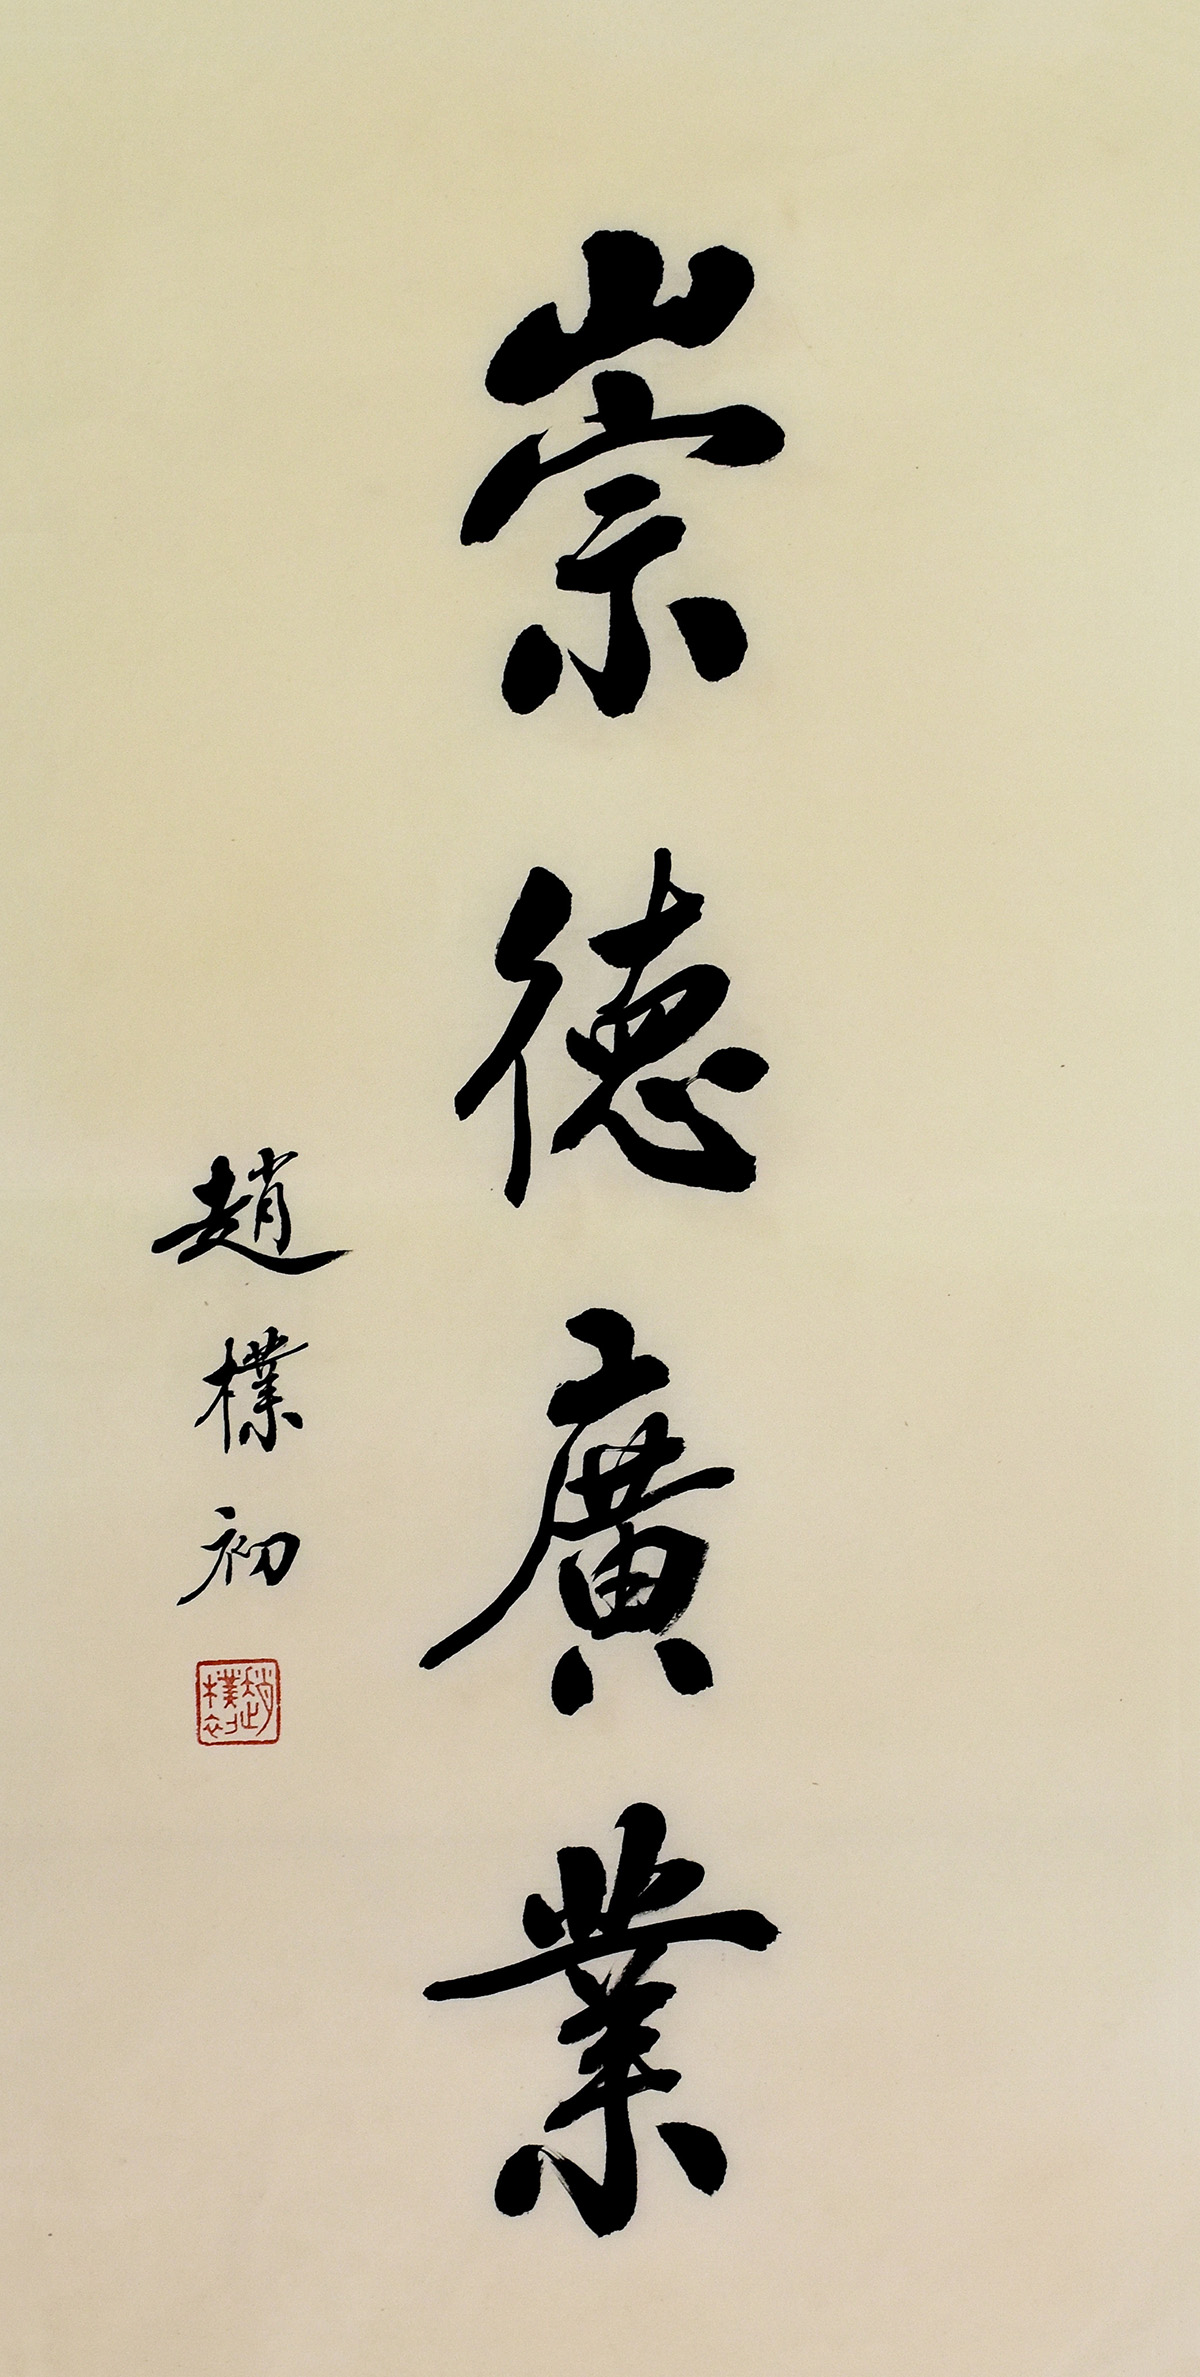 崇德廣業
趙樸初
趙樸初